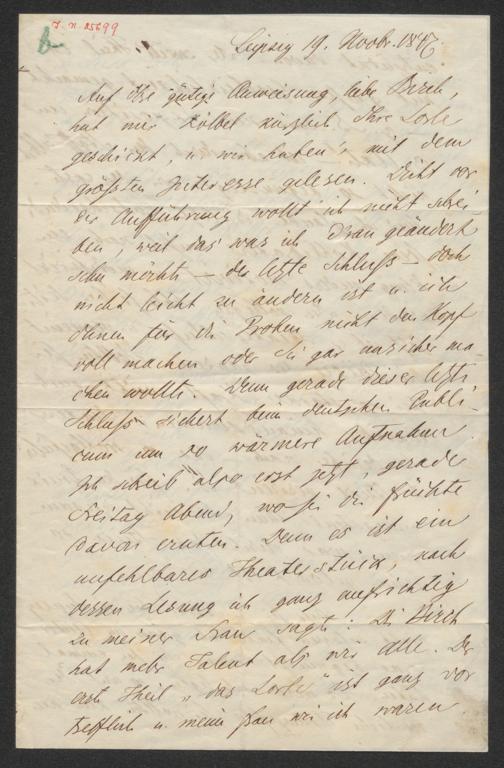 J. N. 25699
Leipzig 19. Novbr. 1847
Auf Ihre gütige Anweisung, liebe Birch,
hat mir Kölbel kürzlich Ihre Lorle
geschickt, u wir haben's mit dem
größten Interesse gelesen. Dicht vor
der Aufführung wollt ich nicht schrei
ben, weil das was ich dran geändert
sehn möchte – der letzte Schluß – doch
nicht leicht zu ändern ist u. ich
Ihnen für die Proben nicht den Kopf
voll machen oder Sie gar unsicher ma
chen wollte. Denn gerade dieser letzte
Schluß sichert beim deutschen Publi-
cum um so wärmere Aufnahme.
Ich schreib also erst jetzt, gerade
Freitag Abend, wo Sie die Früchte
davon ernten. Denn es ist ein
unfehlbares Theaterstück, nach
dessen Lesung ich ganz aufrichtig
zu meiner Frau sagte: Die Birch
hat mehr Talent als wir Alle. Der
erste Theil „das Lorle" ist ganz vor
trefflich u. meine Frau wie ich waren